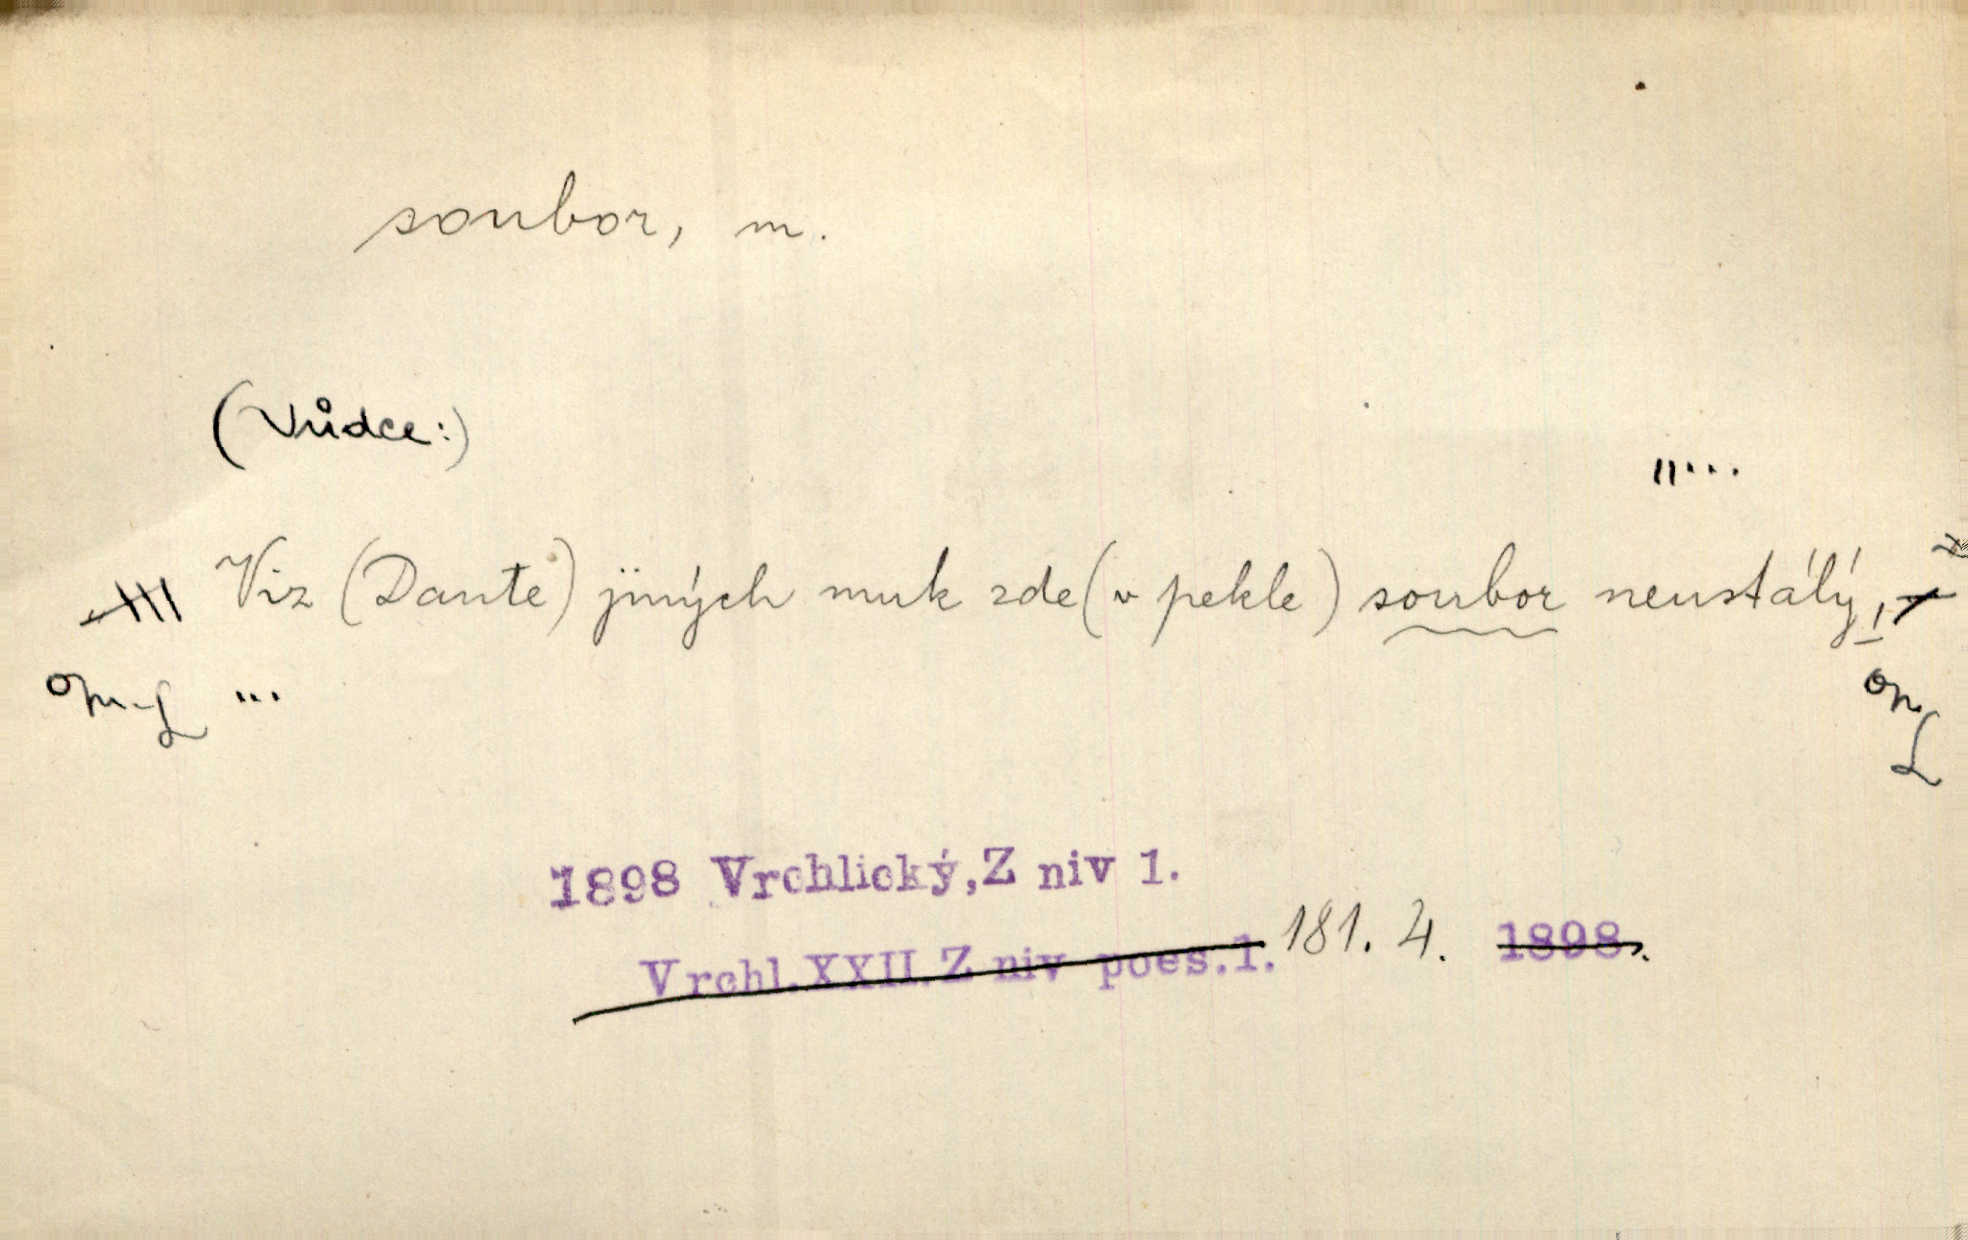 soubor, m.
(Vůdce:)
Viz (Dante) jiných muk zde (v pekle) soubor neustálý,
...
1898 Vrchlický, Z niv 1.
Vrchl. XXII. Z niv poes. 1. 181. 4. 1898.